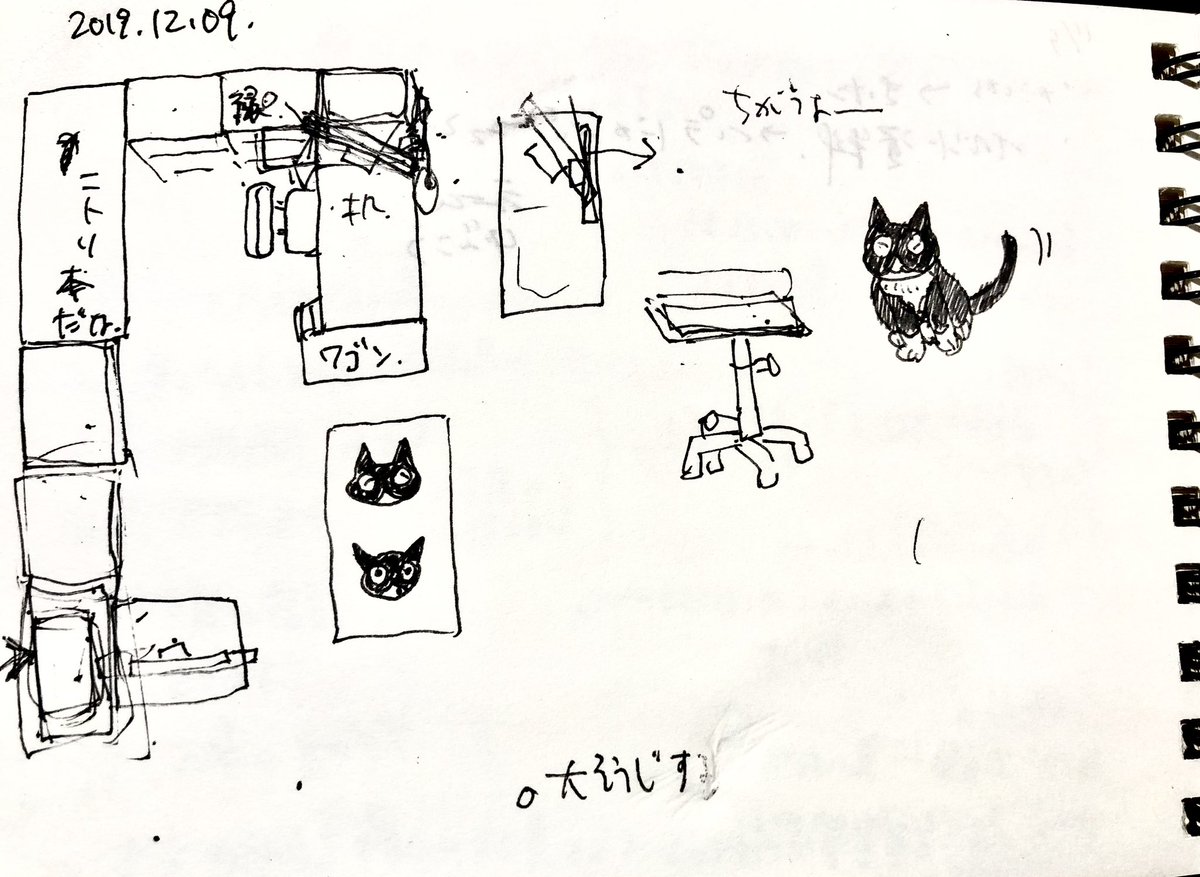 2019.12.09.
ちがうよー
机
ニトリ本だな.
ワゴン.
大そうじす